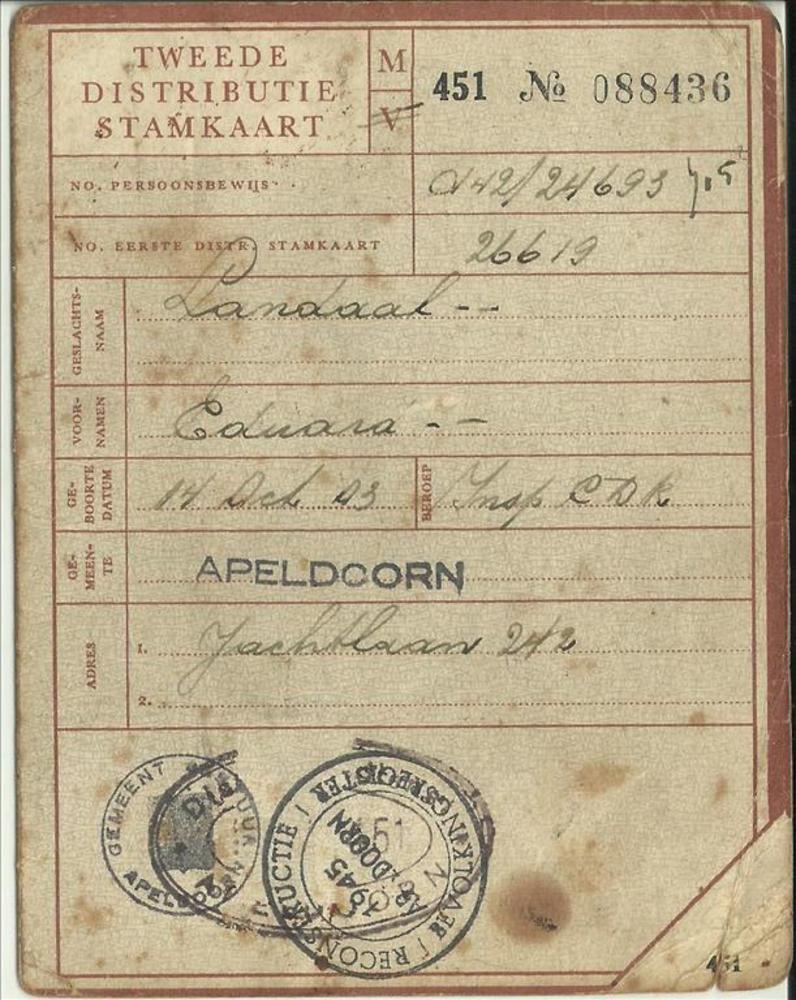 TWEEDE
DISTRIBUTIE
STAMKAART
M
V
451 № 088436
NO. PERSOONSBEWIJS
A42/24693
NO. EERSTE DISTR. STAMKAART
26619
GESLACHTS-
NAAM
Landaal --
VOOR-
NAMEN
Eduard --
GE-
BOORTE
DATUM
14 Oct 03
BEROEP
Insp CDK
GE-
MEEN-
TE
APELDOORN
ADRES
1. Jachtlaan 242
2.
GEMEENT
APELDOORN
RECONSTRUCTIE
BEVOLKINGSREGISTER
1945
451